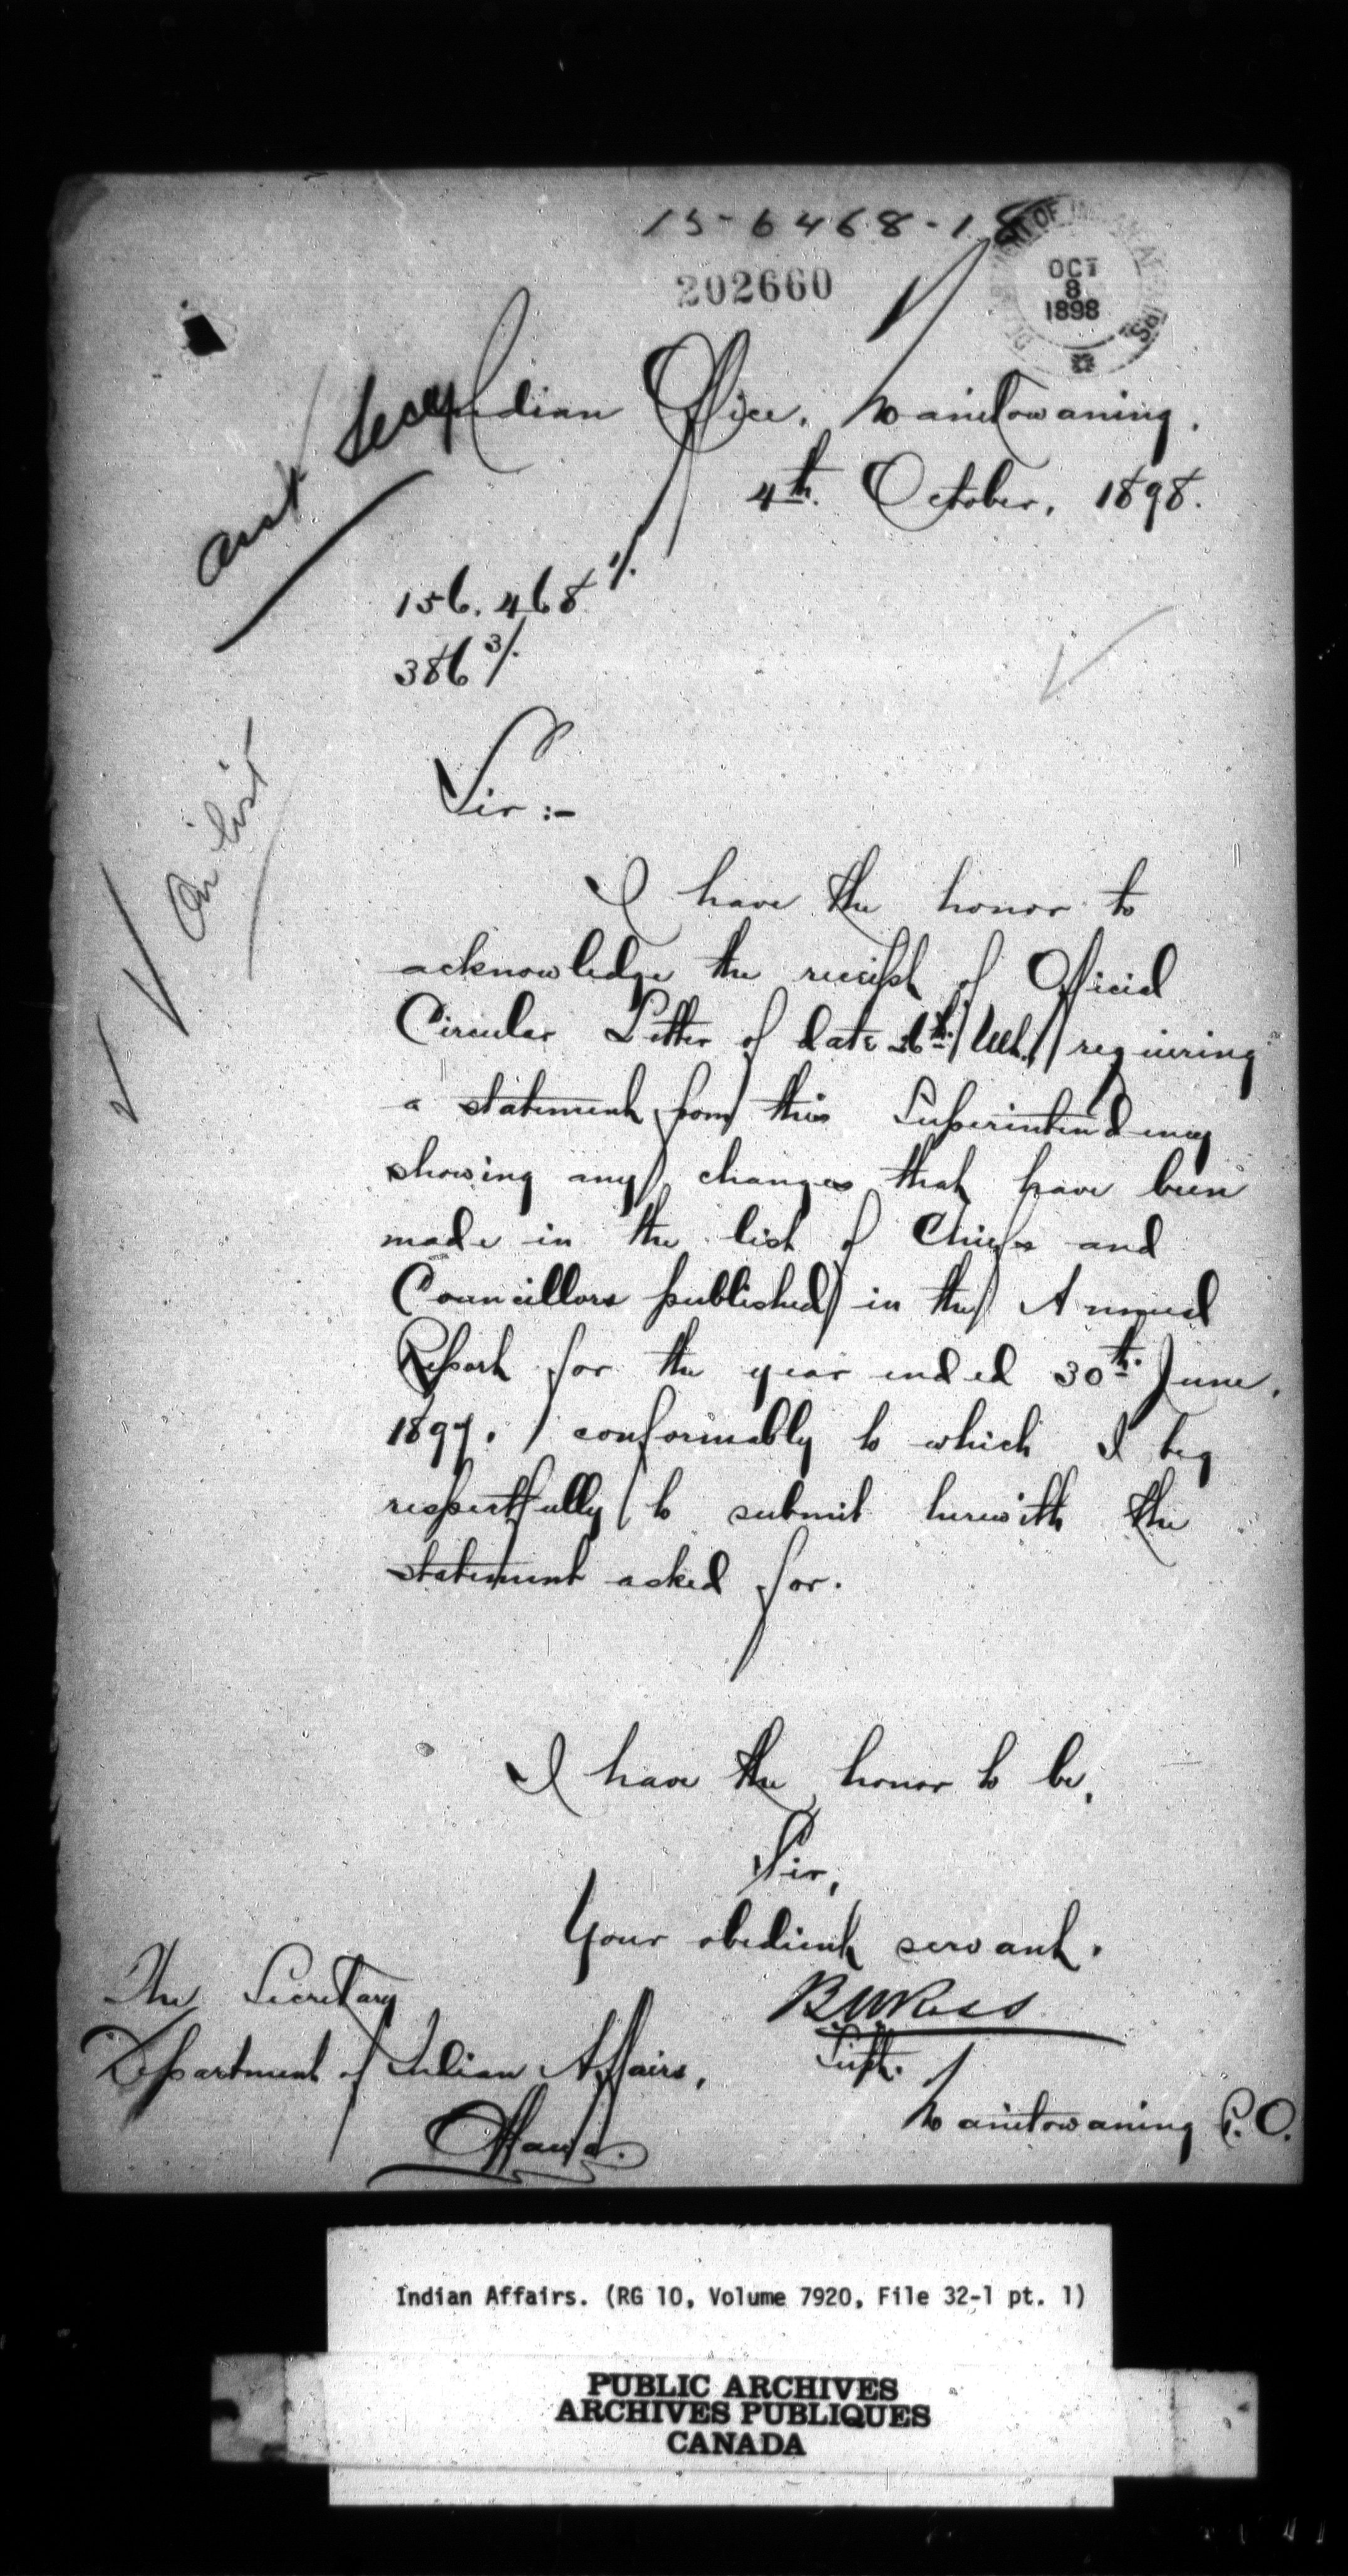 15-6468-18
202660
DEPARTMENT OF INDIAN AFFAIRS
OCT
8
1898
asst Secy
Indian Office, Manitowaning.
4th. October, 1898.
156.468 1/.
386 3/.
On list
Sir :-
I have the honor to
acknowledge the receipt of Official
Circular Letter of date 26th. Ult., requiring
a statement from this Superintendency
showing any changes that have been
made in the list of Chiefs and
Councillors published in the Annual
Report for the year ended 30th. June,
1897. conformably to which I beg
respectfully to submit herewith the
statement asked for.
I have the honor to be,
Sir,
Your obedient servant.
BWRoss
Supt.
Manitowaning P.O.
The Secretary
Department of Indian Affairs,
Ottawa.
Indian Affairs. (RG 10, Volume 7920, File 32-1 pt. 1)
PUBLIC ARCHIVES
ARCHIVES PUBLIQUES
CANADA